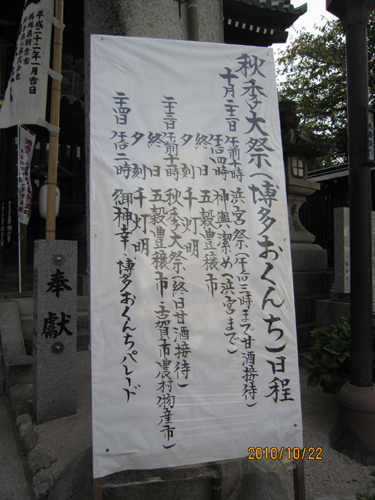 秋季大祭(博多おくんち)日程
十月二十二日 午前十時 浜宮祭(午后三時まで甘酒接待)
午后四時 神輿潔め(浜宮まで)
終日 五穀豊穣市
夕刻 千灯明
二十三日 午前十時 秋季大祭(終日甘酒接待)
終日 五穀豊穣市・古賀市農村物産市
夕刻 千灯明
二十四日 午后二時 御神幸・博多おくんちパレード
平成二十二年一月吉日
奉献
2010/10/22